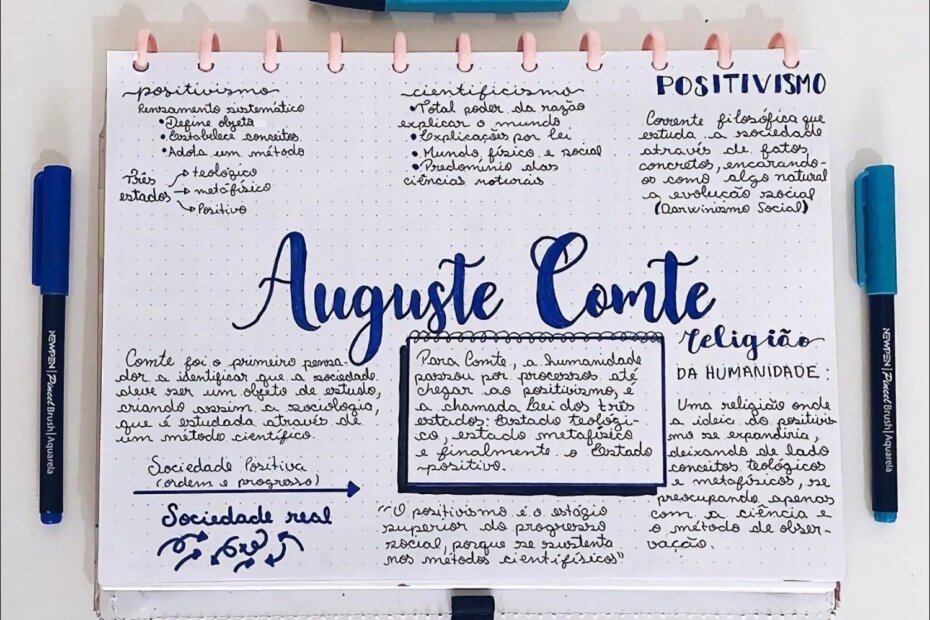 positivismo
Pensamento sistemático
•Define objeto
•Estabelece conceitos
•Adota um método
Três estados
→teológico
→metafísico
→Positivo
cientificismo
•Total poder da razão
explicar o mundo
•Explicações por lei
•Mundo físico e social
•Predomínio das
ciências naturais
POSITIVISMO
Corrente filosófica que
estuda a sociedade
através de fatos
concretos, encarando-
os como algo natural
a evolução social
(Darwinismo Social)
Auguste Comte
Comte foi o primeiro pensa-
dor a identificar que a sociedade
deve ser um objeto de estudo,
criando assim a sociologia,
que é estudada através de
um método científico.
Sociedade Positiva
(ordem e progresso)
Sociedade real
Para Comte, a humanidade
passou por processos até
chegar ao positivismo, é
a chamada Lei dos três
estados: Estado teológi-
co, estado metafísico
e finalmente o Estado
positivo.
"O positivismo é o estágio
superior do progresso
social, porque se sustenta
nos métodos cientifísicos"
religião
DA HUMANIDADE:
Uma religião onde
a ideia do positivis
mo se expandiria,
deixando de lado
conceitos teológicos
e metafísicos, se
preocupando apenas
com a ciência e
o método de obser-
vação.
NEWPEN | Pincel Brush | Aquarela
NEWPEN | Pincel Brush | Aquarela